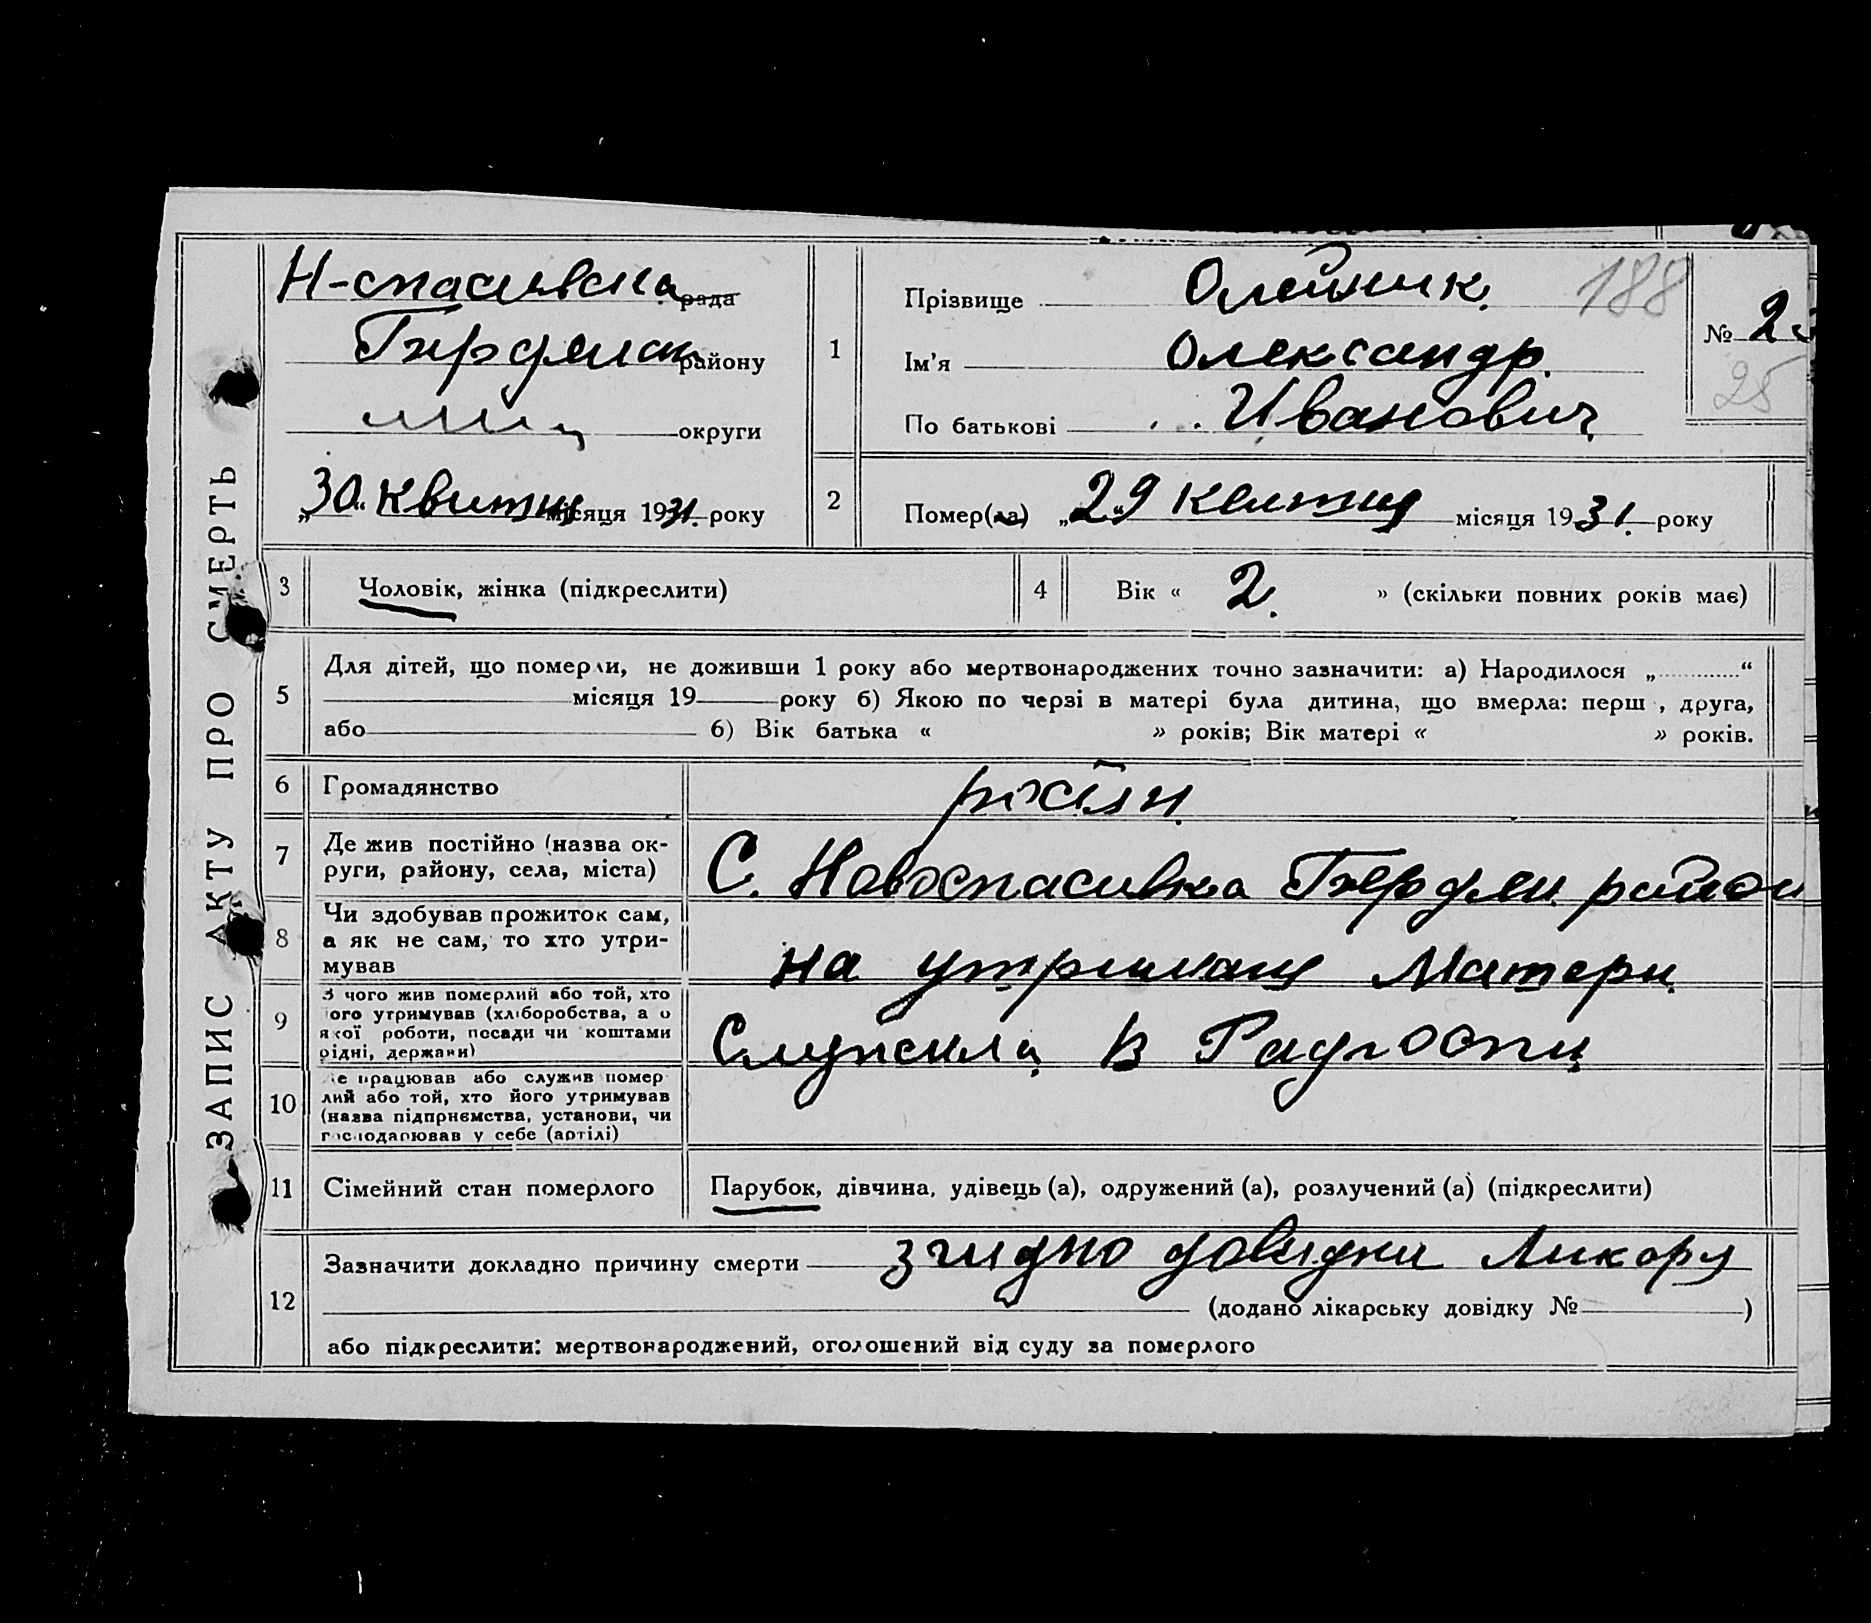 ЗАПИС АКТУ ПРО СМЕРТЬ
Н-спасивска рада
Бердянск району
округи
„30“ Квитня місяця 1931. року
1
Прізвище Олейник. 188
Ім'я Олександр.
По батькові Иванович
№ 25
25
2
Помер(ла) „29“ Квитня місяця 1931. року
3 Чоловік, жінка (підкреслити)
4 Вік « 2. » (скільки повних років має)
5 Для дітей, що померли, не доживши 1 року або мертвонароджених точно зазначити: а) Народилося „............“
місяця 19 року б) Якою по черзі в матері була дитина, що вмерла: перш , друга,
або б) Вік батька « » років; Вік матері « » років.
6 Громадянство
7 Де жив постійно (назва ок-
руги, району, села, міста) С. Новоспасивка Бердян. район
8 Чи здобував прожиток сам,
а як не сам, то хто утри-
мував на утриманц Матери
9 З чого жив померлий або той, хто
його утримував (хліборобства, а о
якої роботи, посади чи коштами
рідні, держави) Служила в Радгоспи
10 Де працював або служив помер
лий або той, хто його утримував
(назва підприємства, установи, чи
господарював у себе (артілі)
11 Сімейний стан померлого Парубок, дівчина, удівець (а), одружений (а), розлучений (а) (підкреслити)
12 Зазначити докладно причину смерти згидно довидки Ликаря
(додано лікарську довідку № )
або підкреслити: мертвонароджений, оголошений від суду за померлого